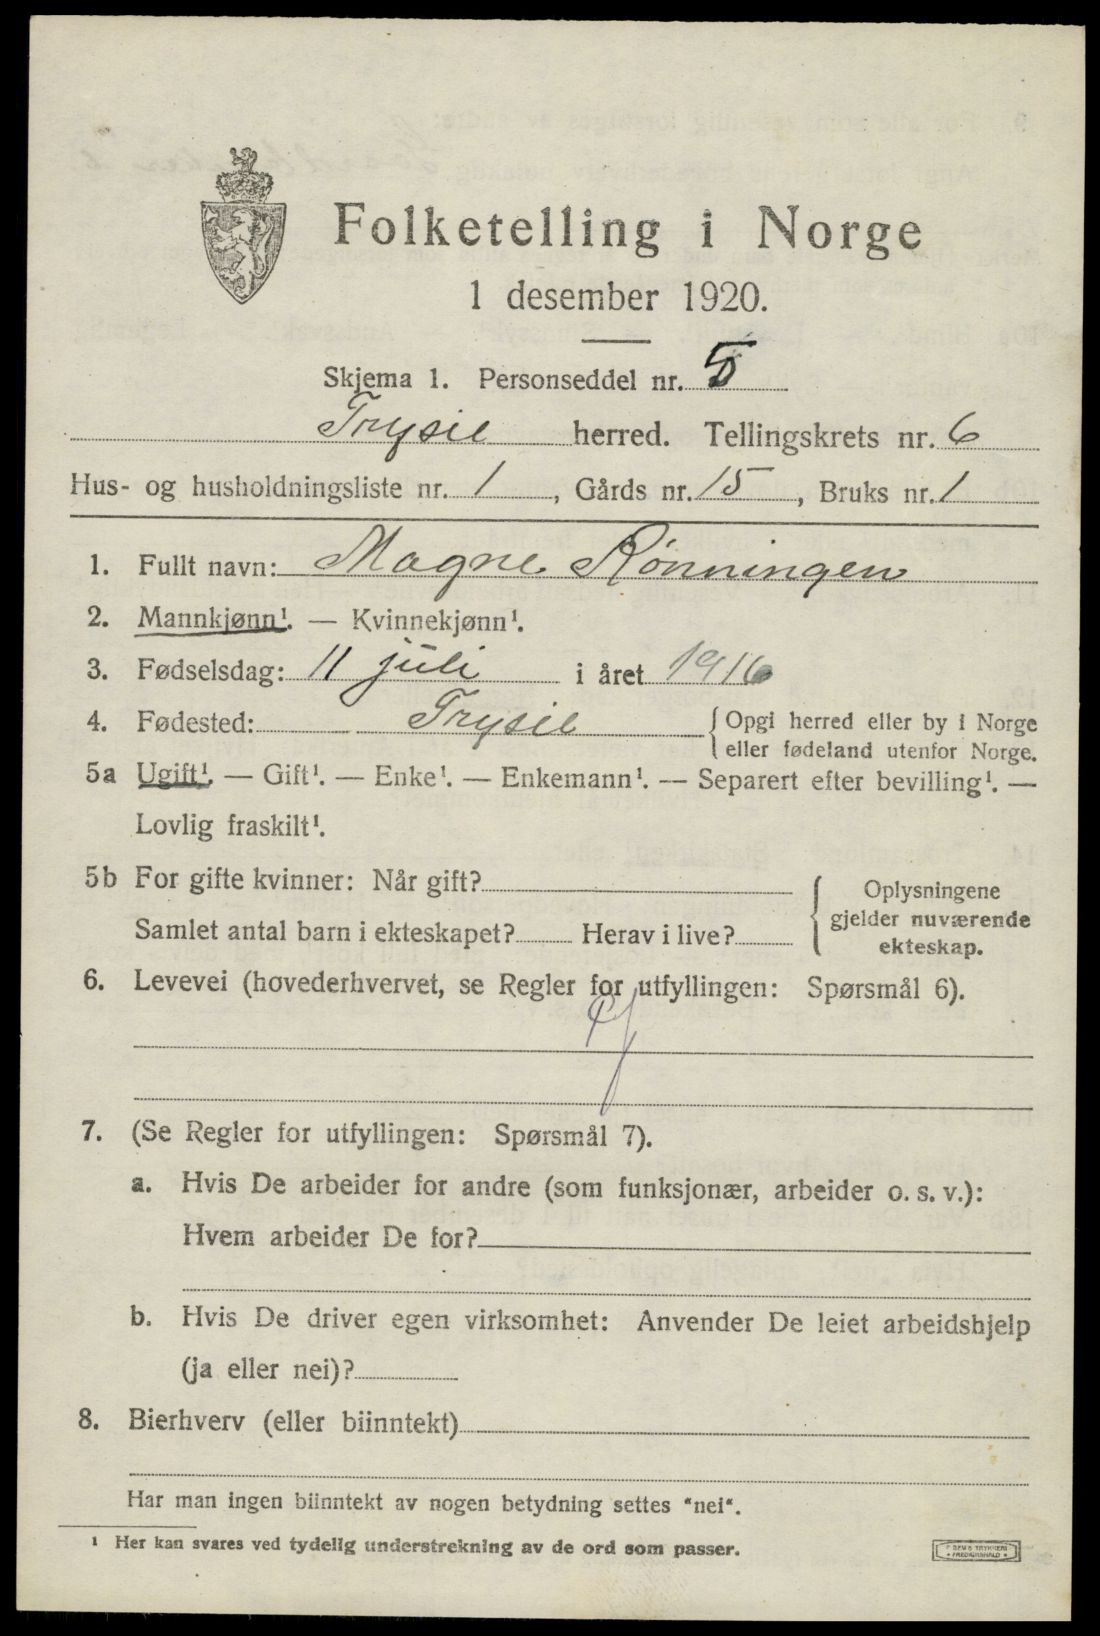 Folketelling i Norge
1 desember 1920.
Skjema 1. Personseddel nr. 5
Trysil herred. Tellingskrets nr. 6
Hus- og husholdningsliste nr. 1, Gårds nr. 15, Bruks nr. 1
1. Fullt navn: Magne Rønningen
2. Mannkjønn¹. — Kvinnekjønn¹.
3. Fødselsdag: 11 juli i året 1916
4. Fødested: Trysil {Opgi herred eller by i Norge
eller fødeland utenfor Norge.
5a Ugift¹. — Gift¹. — Enke¹. — Enkemann¹. — Separert efter bevilling¹. —
Lovlig fraskilt¹.
5b For gifte kvinner: Når gift?
Samlet antal barn i ekteskapet? Herav i live?
{Oplysningene
gjelder nuværende
ekteskap.
6. Levevei (hovederhvervet, se Regler for utfyllingen: Spørsmål 6).
7. (Se Regler for utfyllingen: Spørsmål 7).
a. Hvis De arbeider for andre (som funksjonær, arbeider o. s. v.):
Hvem arbeider De for?
b. Hvis De driver egen virksomhet: Anvender De leiet arbeidshjelp
(ja eller nei)?
8. Bierhverv (eller biinntekt)
Har man ingen biinntekt av nogen betydning settes "nei".
¹ Her kan svares ved tydelig understrekning av de ord som passer.
TRYKKERI
FREDRIKSHALD